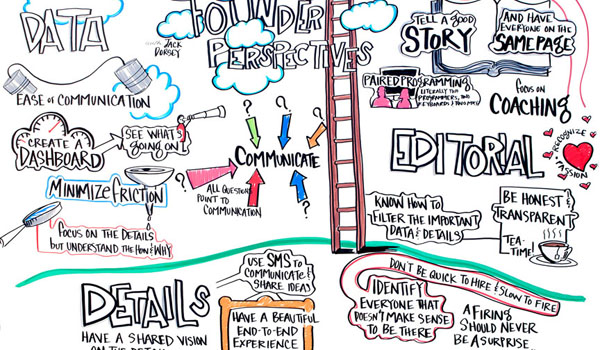 DATA
FOUNDER
PERSPECTIVES
JACK
DORSEY
EASE OF COMMUNICATION
CREATE A
DASHBOARD
SEE WHAT'S
GOING ON
MINIMIZE FRICTION
FOCUS ON THE DETAILS
BUT UNDERSTAND THE HOW & WHY
?
?
?
?
?
COMMUNICATE
ALL QUESTIONS
POINT TO
COMMUNICATION
TELL A GOOD
STORY
AND HAVE
EVERYONE ON THE
SAME PAGE
PAIRED PROGRAMMING
LITERALLY TWO
PROGRAMMERS, TWO
KEYBOARDS &
FOCUS ON
COACHING
EDITORIAL
RECOGNIZE
PASSION
KNOW HOW TO
FILTER THE IMPORTANT
DATA & DETAILS
BE HONEST &
TRANSPARENT
TEA-
TIME!
DETAILS
HAVE A SHARED VISION
ON THE
USE SMS TO
COMMUNICATE &
SHARE IDEAS
HAVE A BEAUTIFUL
END-TO-END
EXPERIENCE
DON'T BE QUICK TO HIRE & SLOW TO FIRE
IDENTIFY
EVERYONE THAT
DOESN'T MAKE SENSE
TO BE THERE
A FIRING
SHOULD NEVER
BE A SURPRISE...